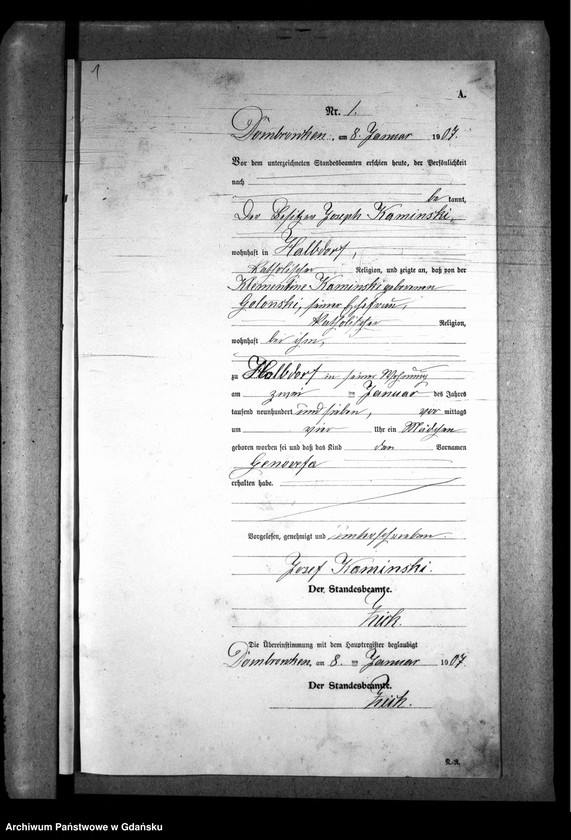 1
A.
Nr. 1.
Dombrowken, am 8. Januar 1907.
Vor dem unterzeichneten Standesbeamten erschien heute, der Persönlichkeit
nach
be kannt,
Der Besitzer Joseph Kaminski,
wohnhaft in Halbdorf,
katholischer Religion, und zeigte an, daß von der
Klementine Kaminski geborenen
Golonski, seiner Ehefrau,
katholischer Religion,
wohnhaft bei ihm,
zu Halbdorf in seiner Wohnung
am zwei ten Januar des Jahres
tausend neunhundert und sieben, vor mittags
um vier Uhr ein Mädchen
geboren worden sei und daß das Kind den Vornamen
Genovefa
erhalten habe.
Vorgelesen, genehmigt und unterschrieben.
Josef Kaminski.
Der Standesbeamte.
Die Übereinstimmung mit dem Hauptregister beglaubigt
Dombrowken, am 8. ten Januar 1907.
Der Standesbeamte.
Archiwum Państwowe w Gdańsku